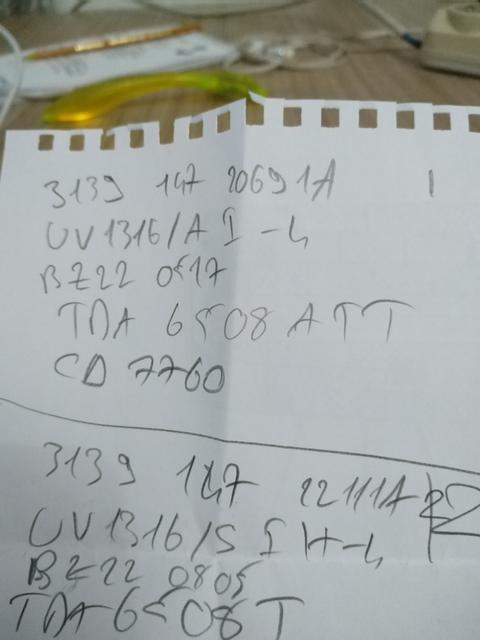 3139 147 20691A 1
UV1316/A I -4
BZ22 0517
TDA 6508 ATT
CD 7760
3139 147 22111A 2
UV1316/S I H-4
BZ22 0805
TDA 6508 T